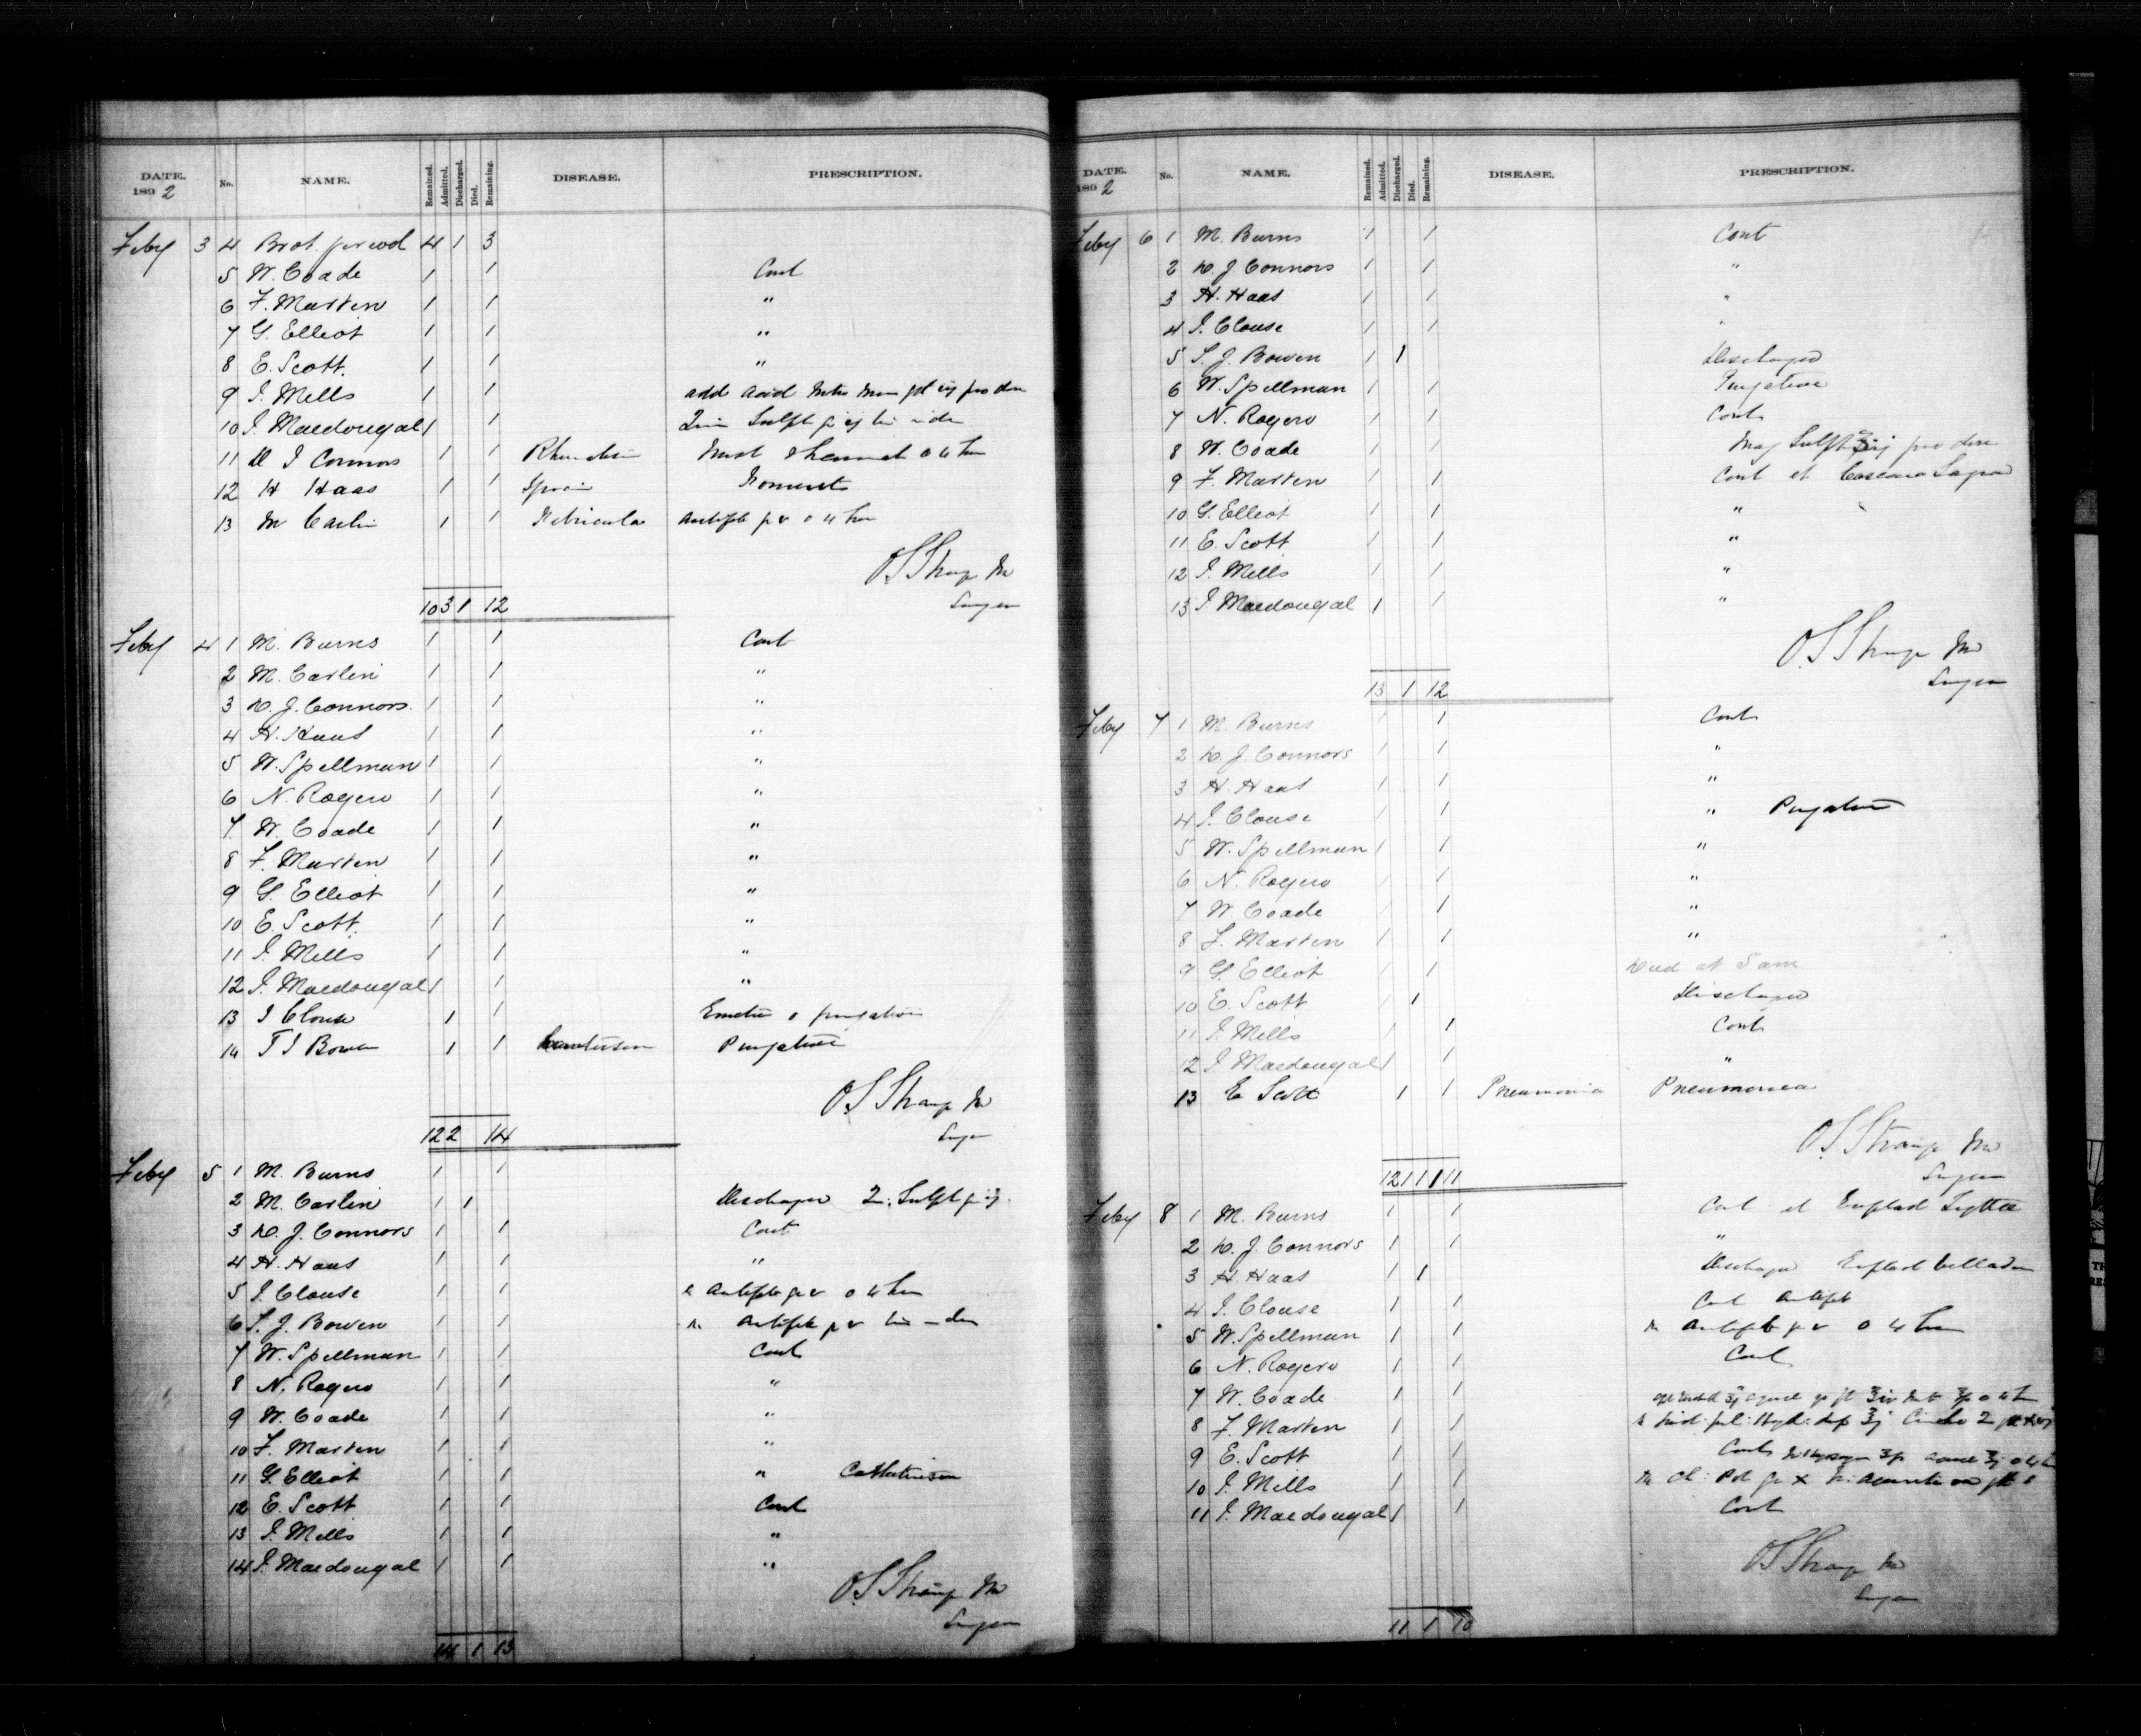 DATE. 1892 No. NAME. Remained. Admitted. Discharged. Died. Remaining. DISEASE. PRESCRIPTION.
Feby 3 4 Brot forwd 4 1 3
5 W. Coade 1 1 Cont
6 F. Marten 1 1 "
7 G. Elliot 1 1 "
8 E. Scott. 1 1 "
9 J. Mills 1 1 add Acid pro dose
10 J. Macdougal 1 1 Sulph
11 D J Connors 1 1 4 hrs
12 H Haas 1 1 Sprain
13 M Carlin 1 1 Febricula Antifeb gr v 4 hrs
O.S. Strange MD
10 3 1 12 Surgeon
Feby 4 1 M. Burns 1 1 Cont
2 M. Carlin 1 1 "
3 D. J. Connors. 1 1 "
4 H. Haas 1 1 "
5 W. Spellman 1 1 "
6 N. Rogers 1 1 "
7 W. Coade 1 1 "
8 F. Marten 1 1 "
9 G. Elliot 1 1 "
10 E. Scott. 1 1 "
11 J. Mills 1 1 "
12 J. Macdougal 1 1 "
13 J Clouse 1 1 purgative
14 T J Bowen 1 1 Purgative
O.S. Strange MD
12 2 14 Surgeon
Feby 5 1 M. Burns 1 1
2 M. Carlin 1 1 Discharged Sulph
3 D. J. Connors 1 1 Cont
4 H. Haas 1 1 "
5 J. Clouse 1 1 Antifeb gr v 4 hrs
6 T. J. Bowen 1 1 Antifeb gr v
7 W. Spellman 1 1 Cont
8 N. Rogers 1 1 "
9 W. Coade 1 1 "
10 F. Marten 1 1 "
11 G. Elliot 1 1 "
12 E. Scott 1 1 Cont
13 J. Mills 1 1 "
14 J. Macdougal 1 1 "
O.S. Strange MD
Surgeon
14 1 13
DATE. 1892 No. NAME. Remained. Admitted. Discharged. Died. Remaining. DISEASE. PRESCRIPTION.
Feby 6 1 M. Burns 1 1 Cont
2 D. J. Connors 1 1 "
3 H. Haas 1 1 "
4 J. Clouse 1 1 "
5 T. J. Bowen 1 1 Discharged
6 W. Spellman 1 1 Purgative
7 N. Rogers 1 1 Cont
8 W. Coade 1 1 Mag Sulph pro dose
9 F. Marten 1 1 Cont et Cascara Sagrada
10 G. Elliot 1 1 "
11 E. Scott 1 1 "
12 J. Mills 1 1 "
13 J. Macdougal 1 1 "
O.S. Strange MD
13 1 12 Surgeon
Feby 7 1 M. Burns 1 1 Cont
2 D. J. Connors 1 1 "
3 H. Haas 1 1 "
4 J. Clouse 1 1 " Purgative
5 W. Spellman 1 1 "
6 N. Rogers 1 1 "
7 W. Coade 1 1 "
8 F. Marten 1 1 "
9 G. Elliot 1 1 Died at 5 am
10 E. Scott 1 1 Discharged
11 J. Mills 1 1 Cont
12 J. Macdougal 1 1 "
13 E Scott 1 1 Pneumonia Pneumonia
O.S. Strange MD
12 1 1 1 11 Surgeon
Feby 8 1 M. Burns 1 1 Cont et Lyttae
2 D. J. Connors 1 1 "
3 H. Haas 1 1 Discharged Emplast belladon
4 J. Clouse 1 1 Cont Antifeb
5 W. Spellman 1 1 Antifeb gr v 4 hrs
6 N. Rogers 1 1 Cont
7 W. Coade 1 1
8 F. Marten 1 1
9 E. Scott 1 1 Cont
10 J. Mills 1 1
11 J. Macdougal 1 1 Cont
O.S. Strange MD
Surgeon
11 1 10